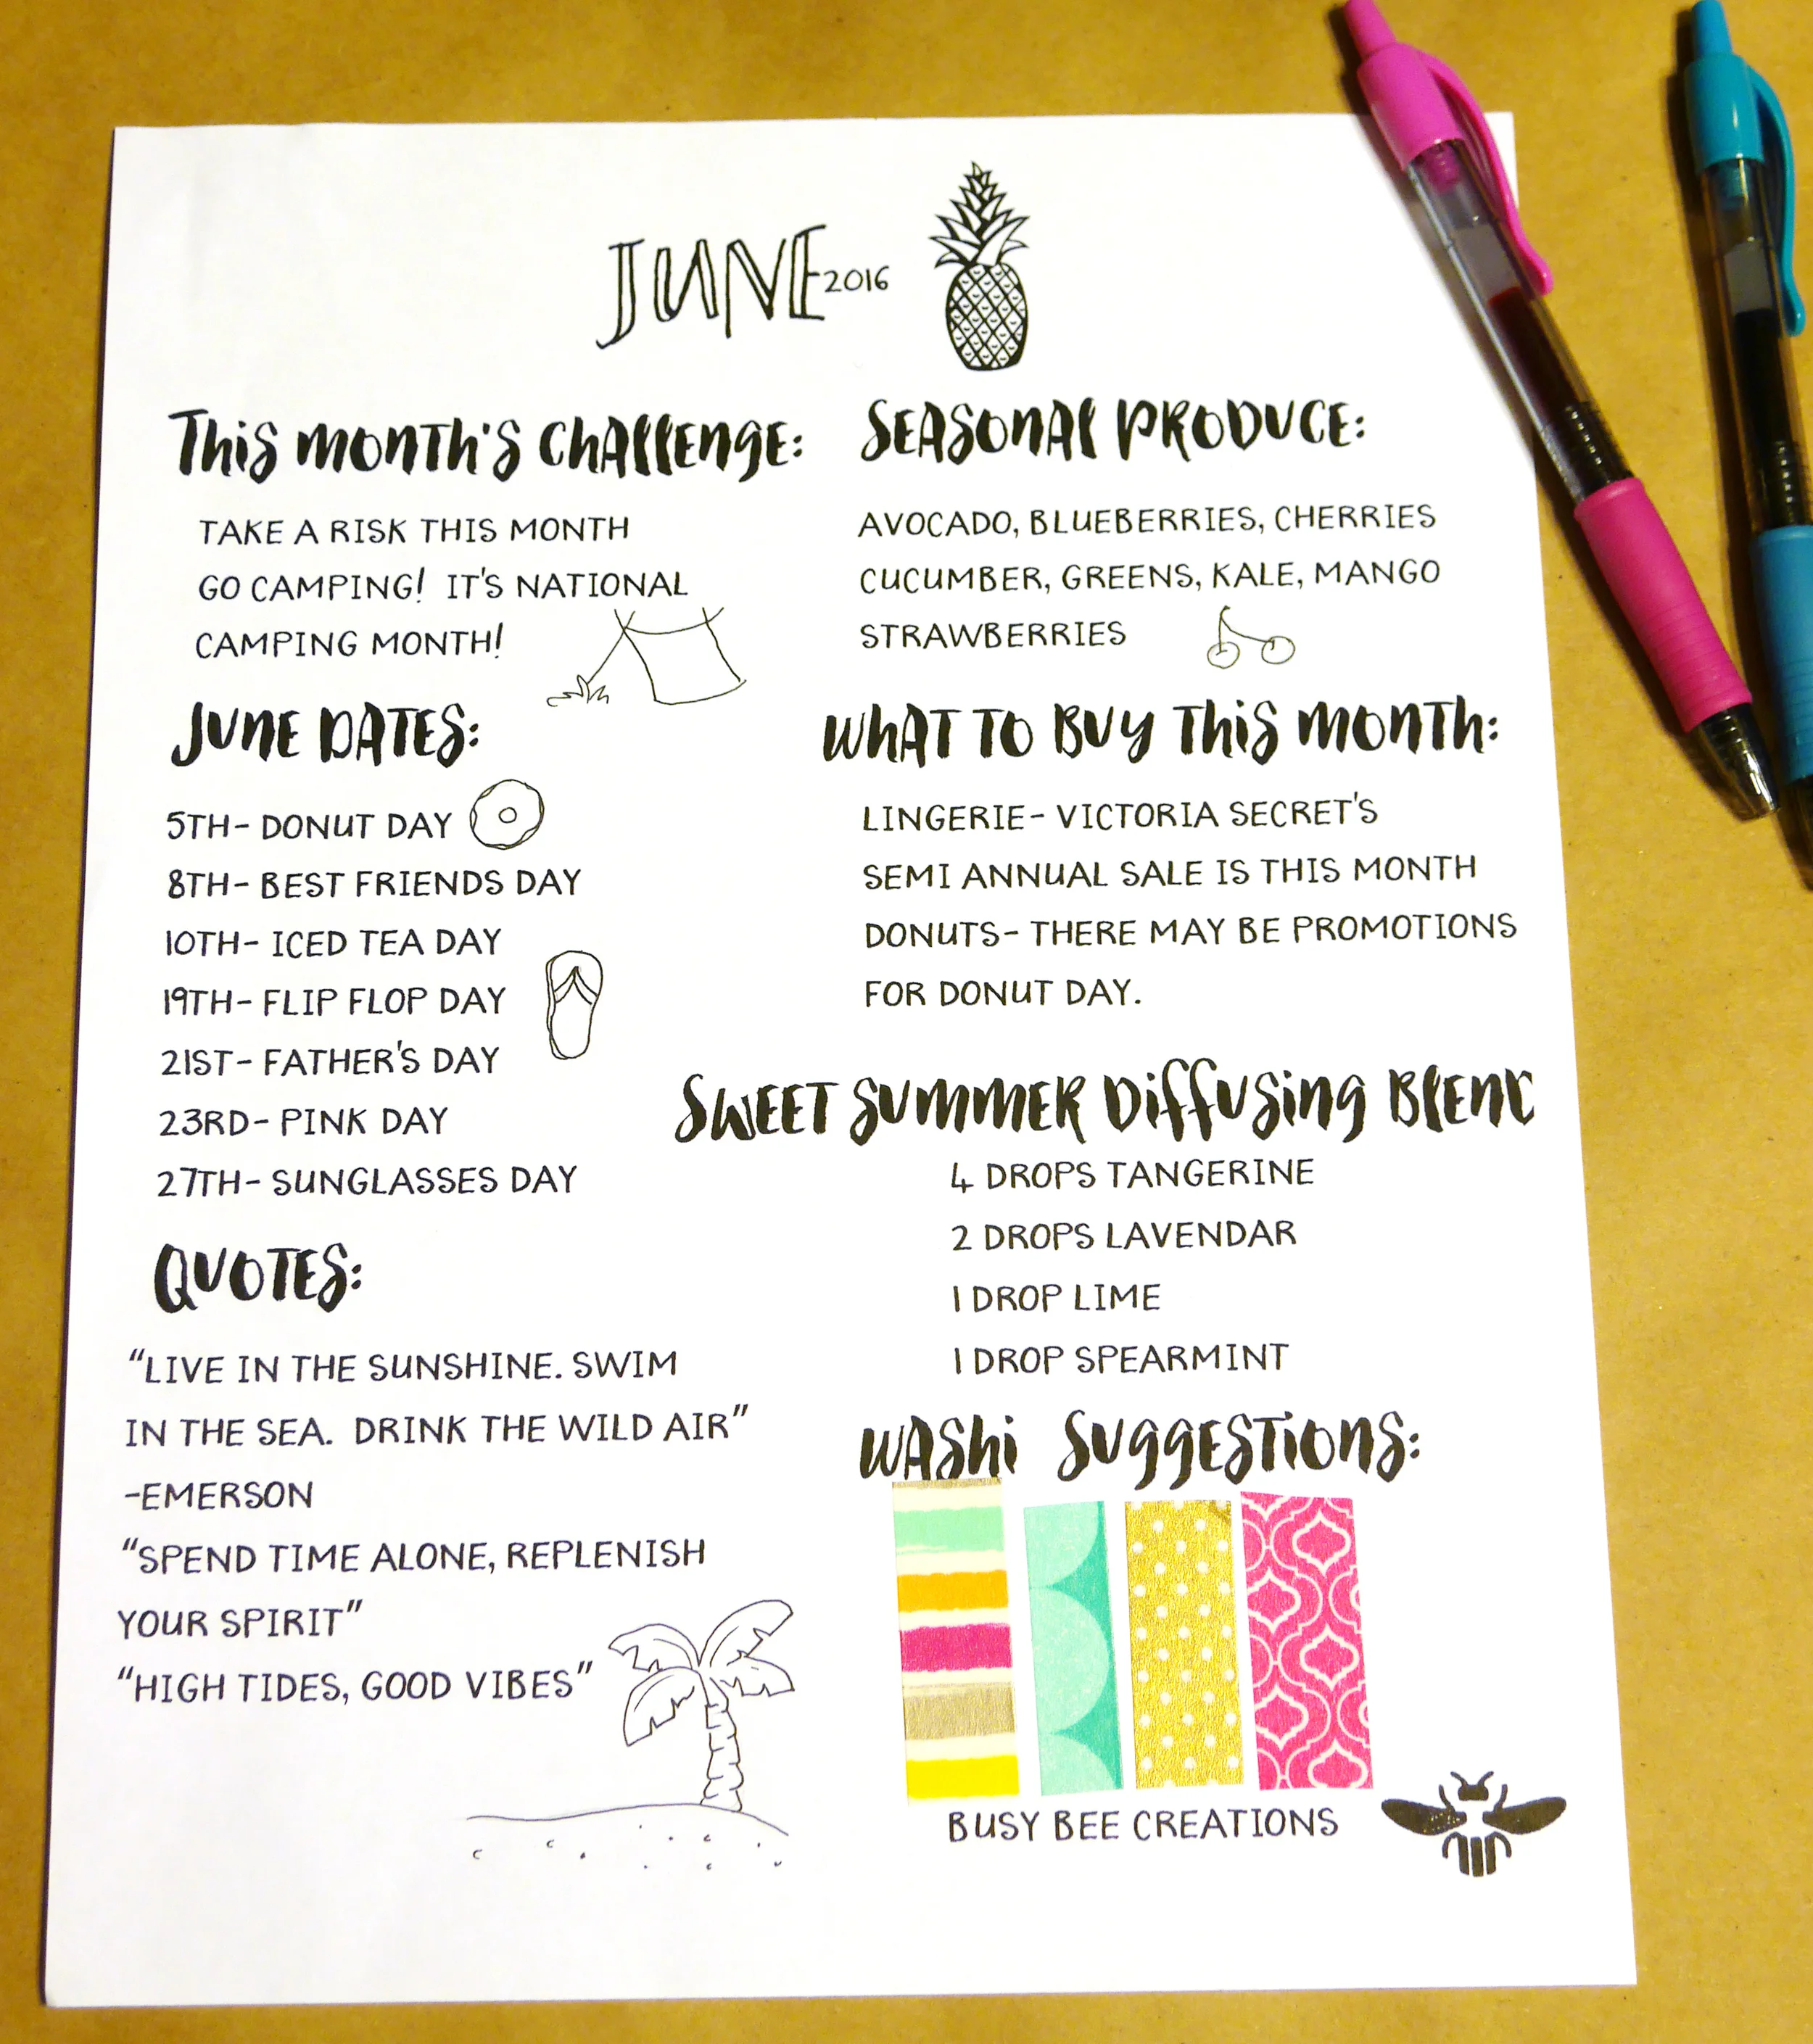 JUNE 2016
THIS MONTH'S CHALLENGE:
TAKE A RISK THIS MONTH
GO CAMPING! IT'S NATIONAL
CAMPING MONTH!
JUNE DATES:
5TH- DONUT DAY
8TH- BEST FRIENDS DAY
10TH- ICED TEA DAY
19TH- FLIP FLOP DAY
21ST- FATHER'S DAY
23RD- PINK DAY
27TH- SUNGLASSES DAY
QUOTES:
"LIVE IN THE SUNSHINE. SWIM
IN THE SEA. DRINK THE WILD AIR"
-EMERSON
"SPEND TIME ALONE, REPLENISH
YOUR SPIRIT"
"HIGH TIDES, GOOD VIBES"
SEASONAL PRODUCE:
AVOCADO, BLUEBERRIES, CHERRIES
CUCUMBER, GREENS, KALE, MANGO
STRAWBERRIES
WHAT TO BUY THIS MONTH:
LINGERIE- VICTORIA SECRET'S
SEMI ANNUAL SALE IS THIS MONTH
DONUTS- THERE MAY BE PROMOTIONS
FOR DONUT DAY.
SWEET SUMMER DIFFUSING BLEND
4 DROPS TANGERINE
2 DROPS LAVENDAR
1 DROP LIME
1 DROP SPEARMINT
WASHI SUGGESTIONS:
BUSY BEE CREATIONS